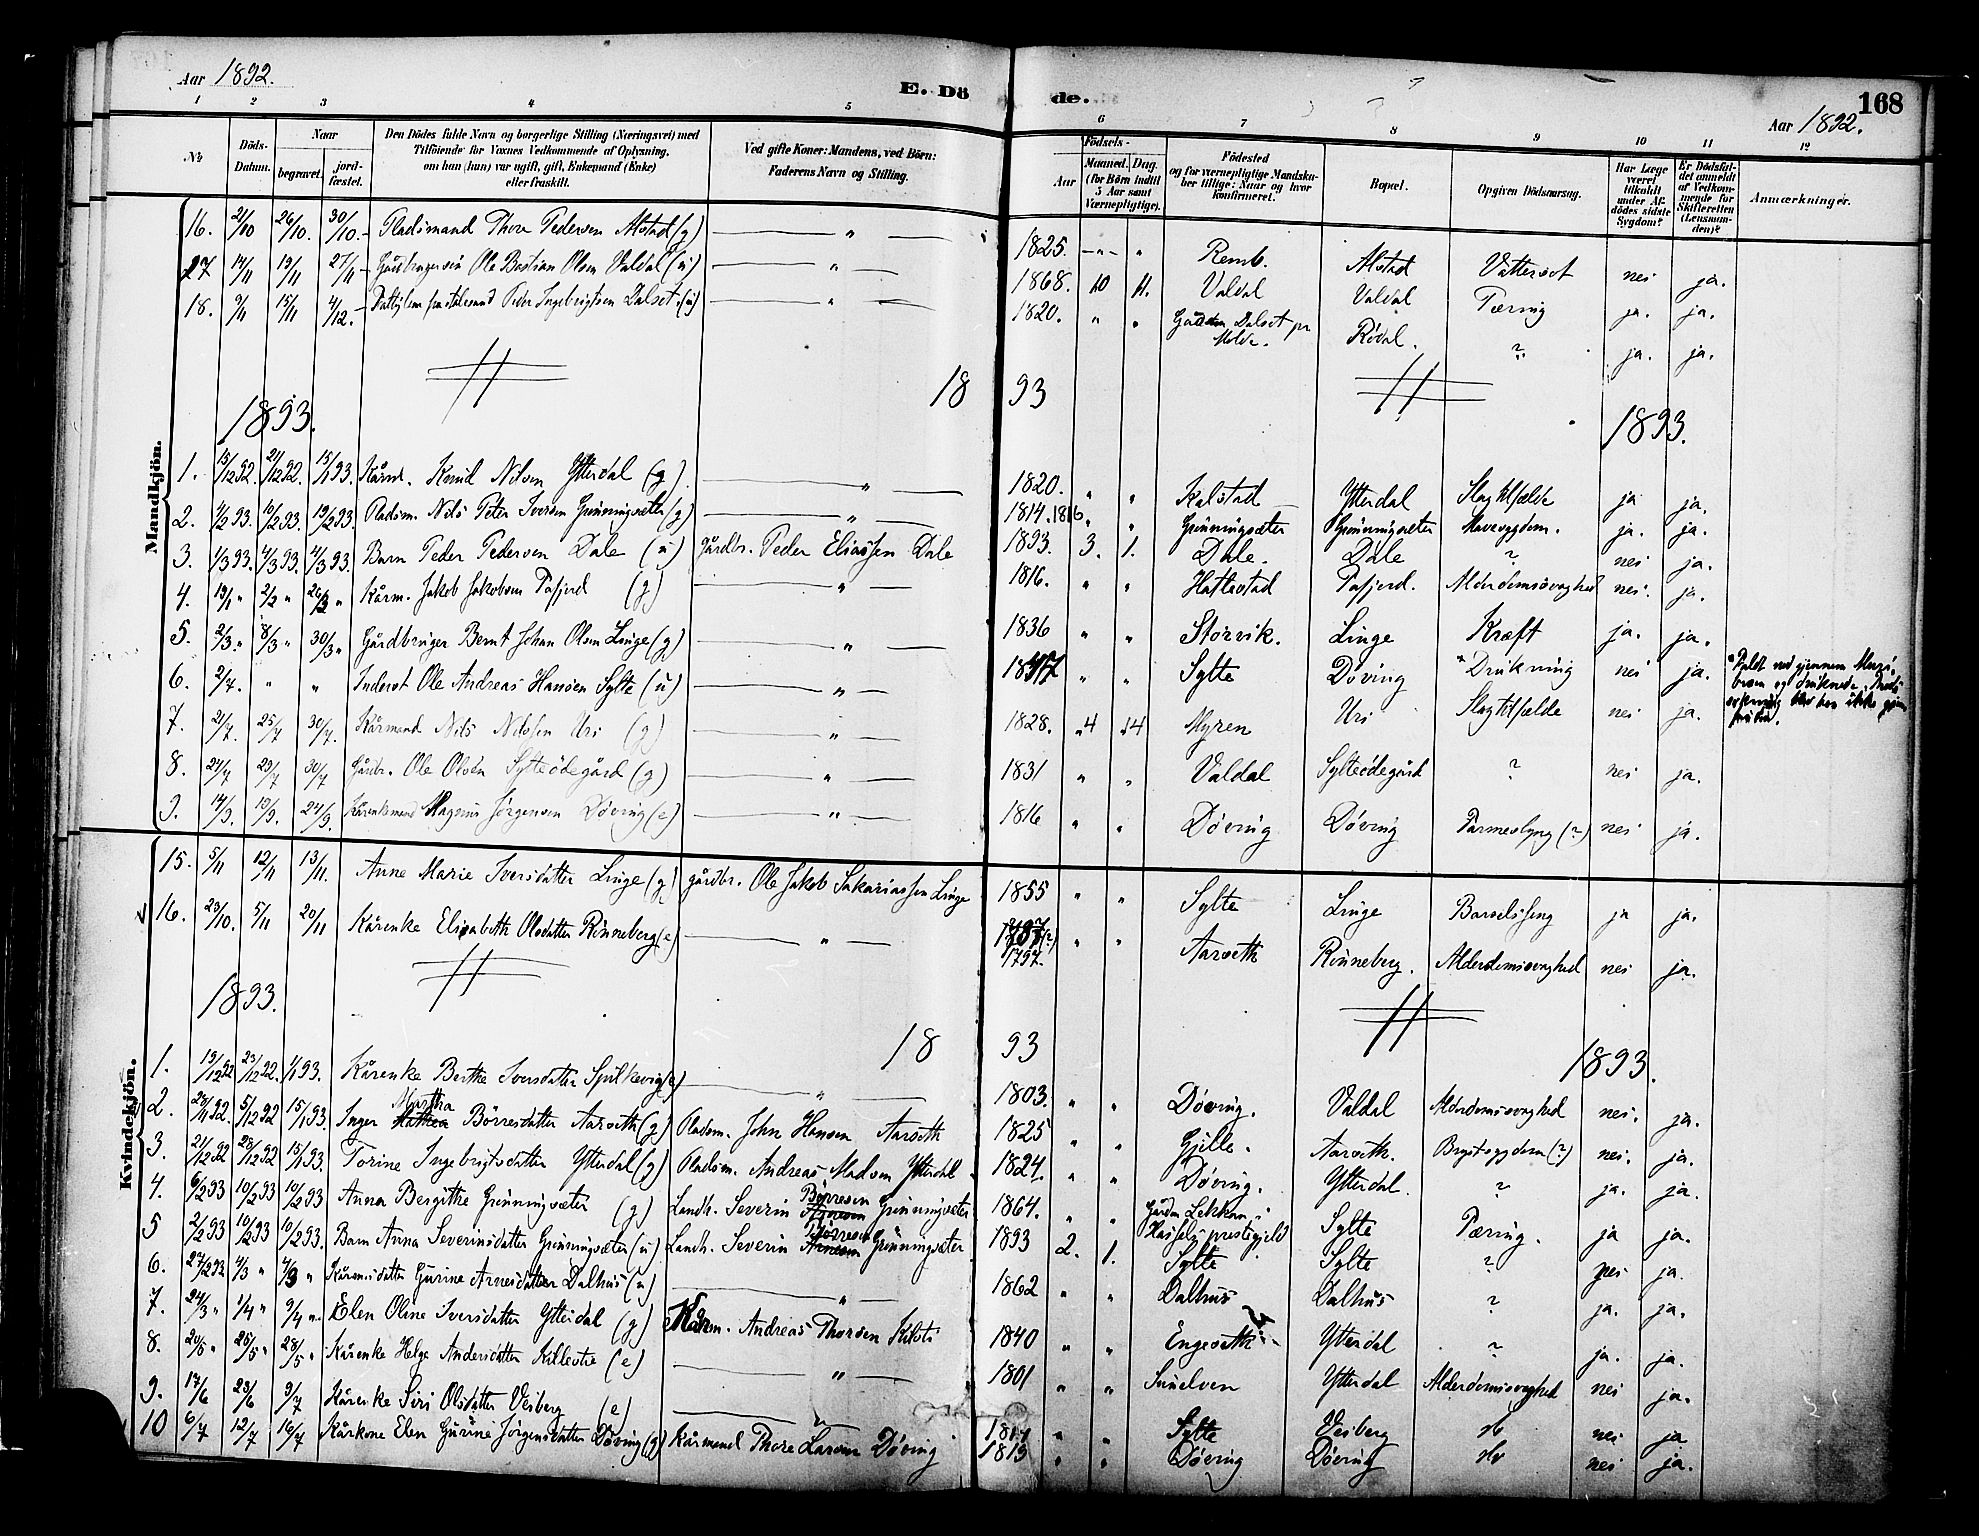 Aar 1892.
E. Dö
de.
168
Aar 1892.
1 2 3 4 5 6 7 8 9 10 11 12
No
Döds-Datum.
Naar
begravet.
jord-fæstet.
Den Dödes fulde Navn og borgerlige Stilling (Næringsvei) med Tilföiende for Voxnes Vedkommende af Oplysning, om han (hun) var ugift, gift, Enkemand (Enke) eller fraskilt.
Ved gifte Koner: Mandens, ved Börn: Faderens Navn og Stilling.
Födsels-
Aar
Maaned. Dag.
(for Börn indtil 5 Aar samt Værnepligtige).
Födested og for værnepligtige Mandskaber tillige: Naar og hvor konfirmeret.
Bopæl.
Opgiven Dödsaarsag.
Har Læge været tilkaldt under Afdödes sidste Sygdom?
Er Dödsfaldet anmeldt af Vedkommende for Skifteretten (Lensmanden)?
Anmærkninger.
Mandkjön.
16. 21/10 26/10. 30/10. Pladsmand Thore Pedersen Alstad (g) " 1825. " " Remb. Alstad Vattersot nei ja.
17 14/11 19/11 27/11 Ole Bastian Olsen Valdal (u) " 1868. 10 11. Valdal Valdal Tæring ja. ja.
18. 9/11 15/11 4/12. Peder Ingebrigtsen Dalset (u) " 1820. " " Gården Dalset pr Molde. Rödal. ? ja. ja.
18 93
1893.
1893.
1. 15/12 92. 21/12 92. 15/1 93. Kårm. Knud Nilsen Ytterdal (g) " 1820. " " Kalstad Ytterdal Slagtilfælde ja ja.
2. 4/2 93. 10/2 93. 19/2 93. Pladsm. Nils Peter Iversen Grönningsæter (g) " 1814. 1816 " " Grönningsæter Grönningsæter Mavesygdom. ja. ja.
3. 1/3 93. 4/3 93. 4/3 93. Barn Peder Pedersen Dale (u) Gårdbr. Peder Eliassen Dale 1893. 3. 1. Dale. Dale ? nei ja.
4. 19/1 " 2/2 " 26/3 " Kårm. Jakob Jakobsen Tafjord (g) " 1816. " " Hattestad Tafjord. Alderdomssvaghed nei. ja.
5. 2/3 " 8/3 " 30/3 " Gårdbruger Bernt Johan Olsen Linge (g) " 1836 " " Storvik. Linge Kræft ja. ja.
6. 2/4. " " Inderst Ole Andreas Hansen Sylte (u) " 1847 " " Sylte Döving *Drukning nei ja.
7. 21/7. 25/7 30/7. Kårmand Nils Nilssen Uri (g) " 1828. 4 14 Myren Uri Slagtilfælde nei ja.
8. 24/7 29/7 30/7 Gårdbr. Ole Olsen Sylteödegård (g) " 1831 " " Valdal Sylteödegård ? nei ja.
9. 14/9. 19/9. 24/9. Kårenkemand Magnus Jörgensen Döving (e) " 1816 " " Döving Döving Tarmeslyng (?) nei ja.
15. 5/11 12/11 13/11. Anne Marie Iversdatter Linge (g) gårdbr. Ole Jakob Sakariassen Linge 1855 " " Sylte Linge Barselseng ja ja.
16. 23/10. 5/11 20/11 Kårenke Elisabeth Olsdatter Rönneberg (e) " 1797. " " Aarseth Rönneberg. Alderdomssvaghed nei ja.
1893.
18 93
1893.
Kvindekjön.
1. 19/12 92 23/12 92. 1/1 93. Kårenke Berthe Iversdatter Spilkevig (e) " 1803. " " Döving. Valdal Alderdomssvaghed nei. ja.
2. 28/11 92. 5/12 92 15/1 93. Inger Martha Börresdatter Aarseth (g) Pladsm. John Hansen Aarseth 1825 " " Gjille. Aarseth. Brystsygdom (?) nei. ja.
3. 21/12 92 28/12 92 15/1 93. Torine Ingebrigtsdatter Ytterdal (g) Pladsm. Andreas Madsen Ytterdal 1824. " " Döving. Ytterdal. ? ja. ja.
4. 6/2 93 10/2 93 10/2 93 Anna Bergithe Grönningsæter (g) Landh. Severin Börresen Grönningsæter 1864. " " Gården Lekkan i Hasfels prestegjeld Sylte Tæring. ja ja.
5 2/2 93 10/2 93 10/2 93. Barn Anna Severinsdatter Grönningsæter (u) Landh. Severin Börresen Grönningsæter 1893 2. 1. Sylte Sylte ? nei ja.
6. 27/2 93 4/3 " 4/3 " Kårmsdatter Gurine Arnesdatter Dalhus (u) " 1862 " " Dalhus Dalhus ? ja. ja.
7. 24/3 " 1/4 " 9/4 " Elen Oline Iversdatter Ytterdal (g) Kårm. Andreas Thorsen 1840 " " Engeseth Ytterdal ? ja. ja.
8. 20/5 " 25/5 " 28/5 " Kårenke Helge Andersdatter Killestie (e) " 1801 " " Sunelven Ytterdal Alderdomssvaghed nei ja.
9. 17/6 23/6 9/7 Kårenke Siri Olsdatter Veiberg (e) " 1814 " " Sylte Veiberg do nei ja
10 6/7 12/7 16/7 Kårkone Elen Gurine Jörgensdatter Döving (g) Kårmand Thore Larsen Döving 1819 " " Döving Döving do nei ja.